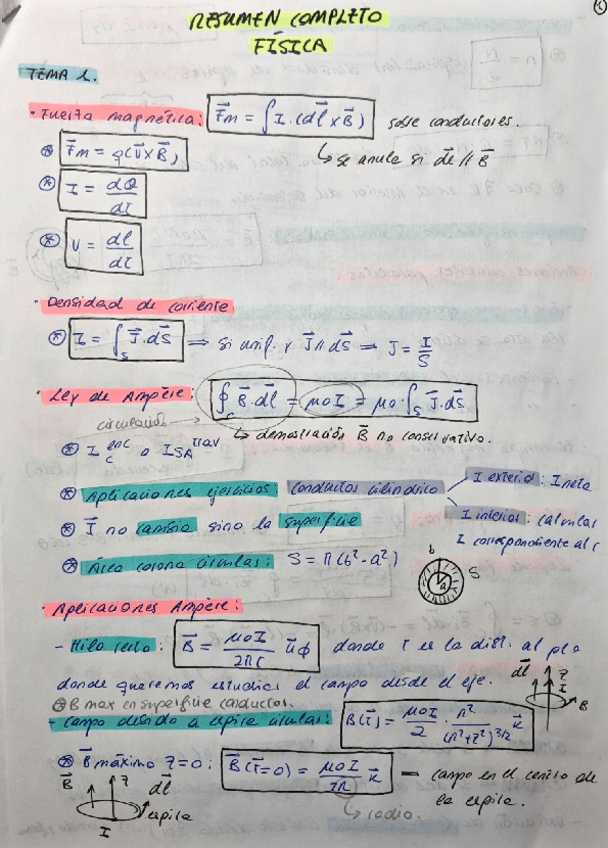 RESUMEN COMPLETO
FÍSICA
TEMA 1.
· Fuerza magnética: F⃗m = ∫ I · (dl⃗ x B⃗) sobre conductores.
⊛ F⃗m = q(v⃗ x B⃗) ↳ se anula si dl⃗ // B⃗
⊛ I = dQ/dt
⊛ v = dl/dt
· Densidad de corriente
⊛ I = ∫s J⃗ · dS⃗ ⇒ Si unif. y J⃗ // dS⃗ ⇒ J = I/S
· Ley de Ampère: ∮c B⃗ · dl⃗ = μ0 I = μ0 · ∫s J⃗ · dS⃗
circulación ↳ demostración B⃗ no conservativo.
⊛ I c enc o I SA TRAV
⊛ Aplicaciones ejercicios: conductor cilíndrico I exterior: I neta
⊛ I no cambia sino la superficie I interior: calcular
I correspondiente al r
⊛ Área corona circular: S = π(b² - a²) b a S
· Aplicaciones Ampère:
- Hilo recto: B⃗ = μ0 I / 2πr u⃗φ donde r es la dist. al pto
donde queremos estudiar el campo desde el eje. dl⃗ z I B
⊛ B max en superficie conductor.
- Campo debido a espira circular: B(z⃗) = μ0 I / 2 · R² / (R² + z²)^3/2 k⃗
⊛ B⃗ máximo z = 0: B⃗(z = 0) = μ0 I / 2R k⃗ — campo en el centro de
la espira.
↳ radio.
B⃗ z dl⃗ espira I